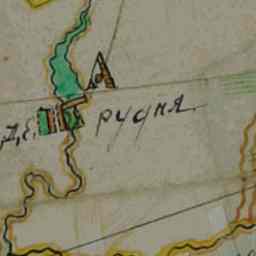 Д,Е, рудня